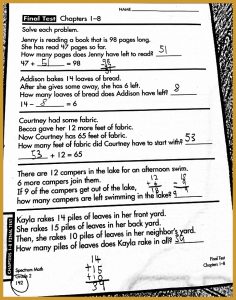 NAME
Final Test Chapters 1–8
Solve each problem.
Jenny is reading a book that is 98 pages long.
She has read 47 pages so far.
How many pages does Jenny have left to read? 51
47 + 51 = 98
98
Addison bakes 14 loaves of bread.
After she gives some away, she has 6 left.
How many loaves of bread does Addison have left? 8
14 – 8 = 6
Courtney had some fabric.
Becca gave her 12 more feet of fabric.
Now Courtney has 65 feet of fabric.
How many feet of fabric did Courtney have to start with? 53
53 + 12 = 65
There are 12 campers in the lake for an afternoon swim.
6 more campers join them.
If 9 of the campers get out of the lake,
how many campers are left swimming in the lake? 9
12
+ 6
18
18
- 9
Kayla rakes 14 piles of leaves in her front yard.
She rakes 15 piles of leaves in her back yard.
Then, she rakes 10 piles of leaves in her neighbor's yard.
How many piles of leaves does Kayla rake in all? 39
14
+15
+10
39
CHAPTERS 1–8 FINAL TEST
Spectrum Math
Grade 2
192
Final Test
Chapters 1–8